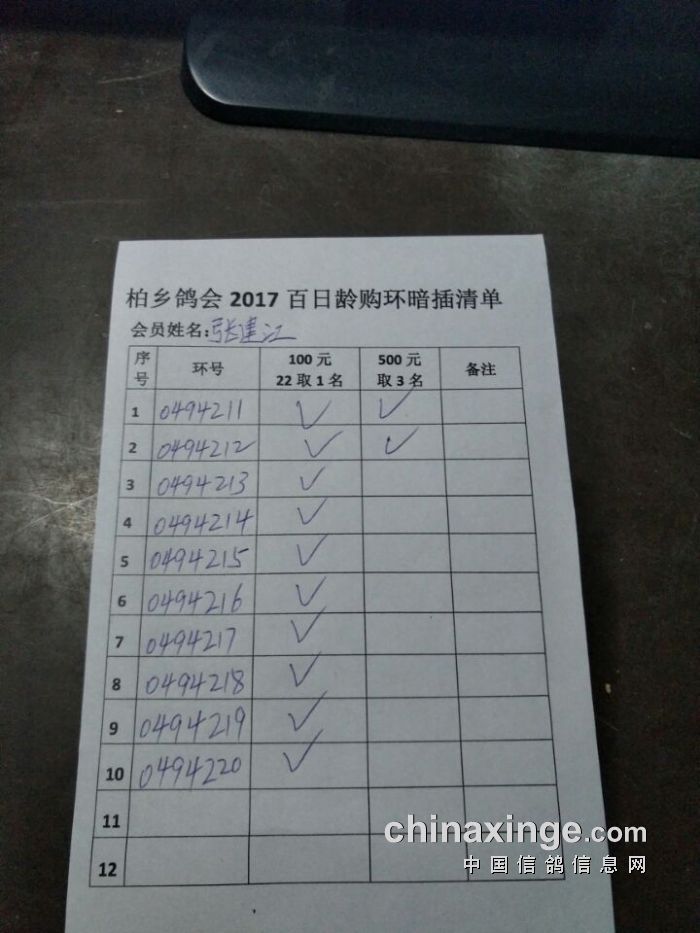 柏乡鸽会2017百日龄购环暗插清单
会员姓名:张建江
序号 环号 100元 22取1名 500元 取3名 备注
1 0494211 ✓ ✓
2 0494212 ✓ ✓
3 0494213 ✓
4 0494214 ✓
5 0494215 ✓
6 0494216 ✓
7 0494217 ✓
8 0494218 ✓
9 0494219 ✓
10 0494220 ✓
11
12
chinaxinge.com
中国信鸽信息网